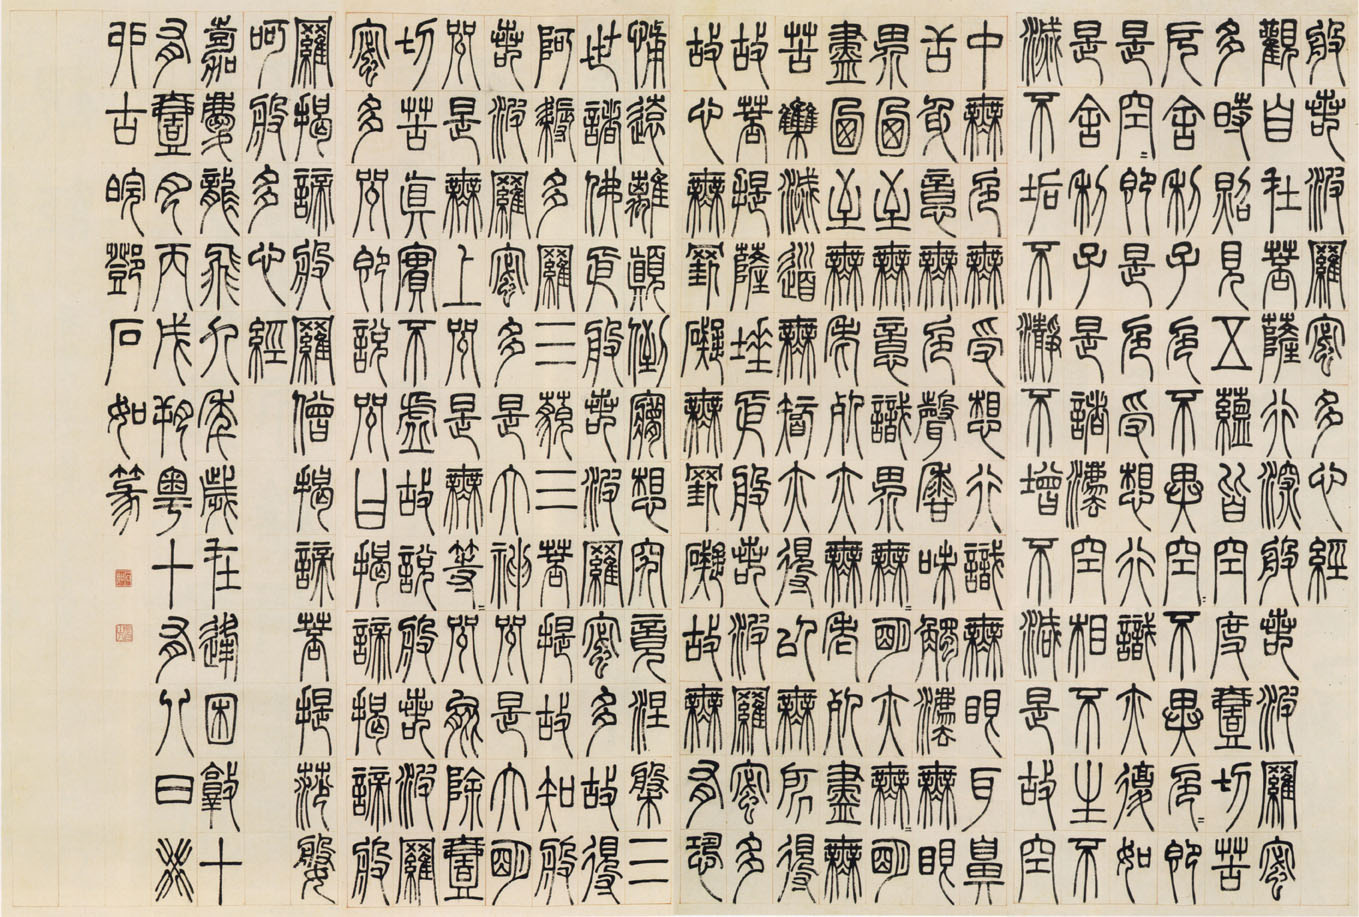 般若波羅蜜多心經
觀自在菩薩行深般若波羅蜜
多時照見五蘊皆空度壹切苦
厄舍利子色不異空=不異色=即
是空=即是色受想行識亦復如
是舍利子是諸法空相不生不
滅不垢不瀞不增不減是故空
中無色無受想行識無眼耳鼻
舌身意無色聲香味觸法無眼
界乃至無意識界無=明亦無=明
盡乃至無老死亦無老死盡無
苦集滅道無智亦得以無所得
故菩提薩埵依般若波羅蜜多
故心無罣礙無罣礙故無有恐
怖遠離顛倒夢想究竟涅槃三
世諸佛依般若波羅蜜多故得
阿耨多羅三藐三菩提故知般
若波羅蜜多是大神咒是大明
咒是無上咒是無等=咒能除壹
切苦真實不虛故說般若波羅
蜜多咒即說咒曰揭諦揭諦般
羅揭諦般羅僧揭諦菩提莎婆
呵般多心經
嘉慶龍飛九年歲在逢困敦十
有壹月丙戌朔粵十有八日癸
卯古皖鄧石如篆